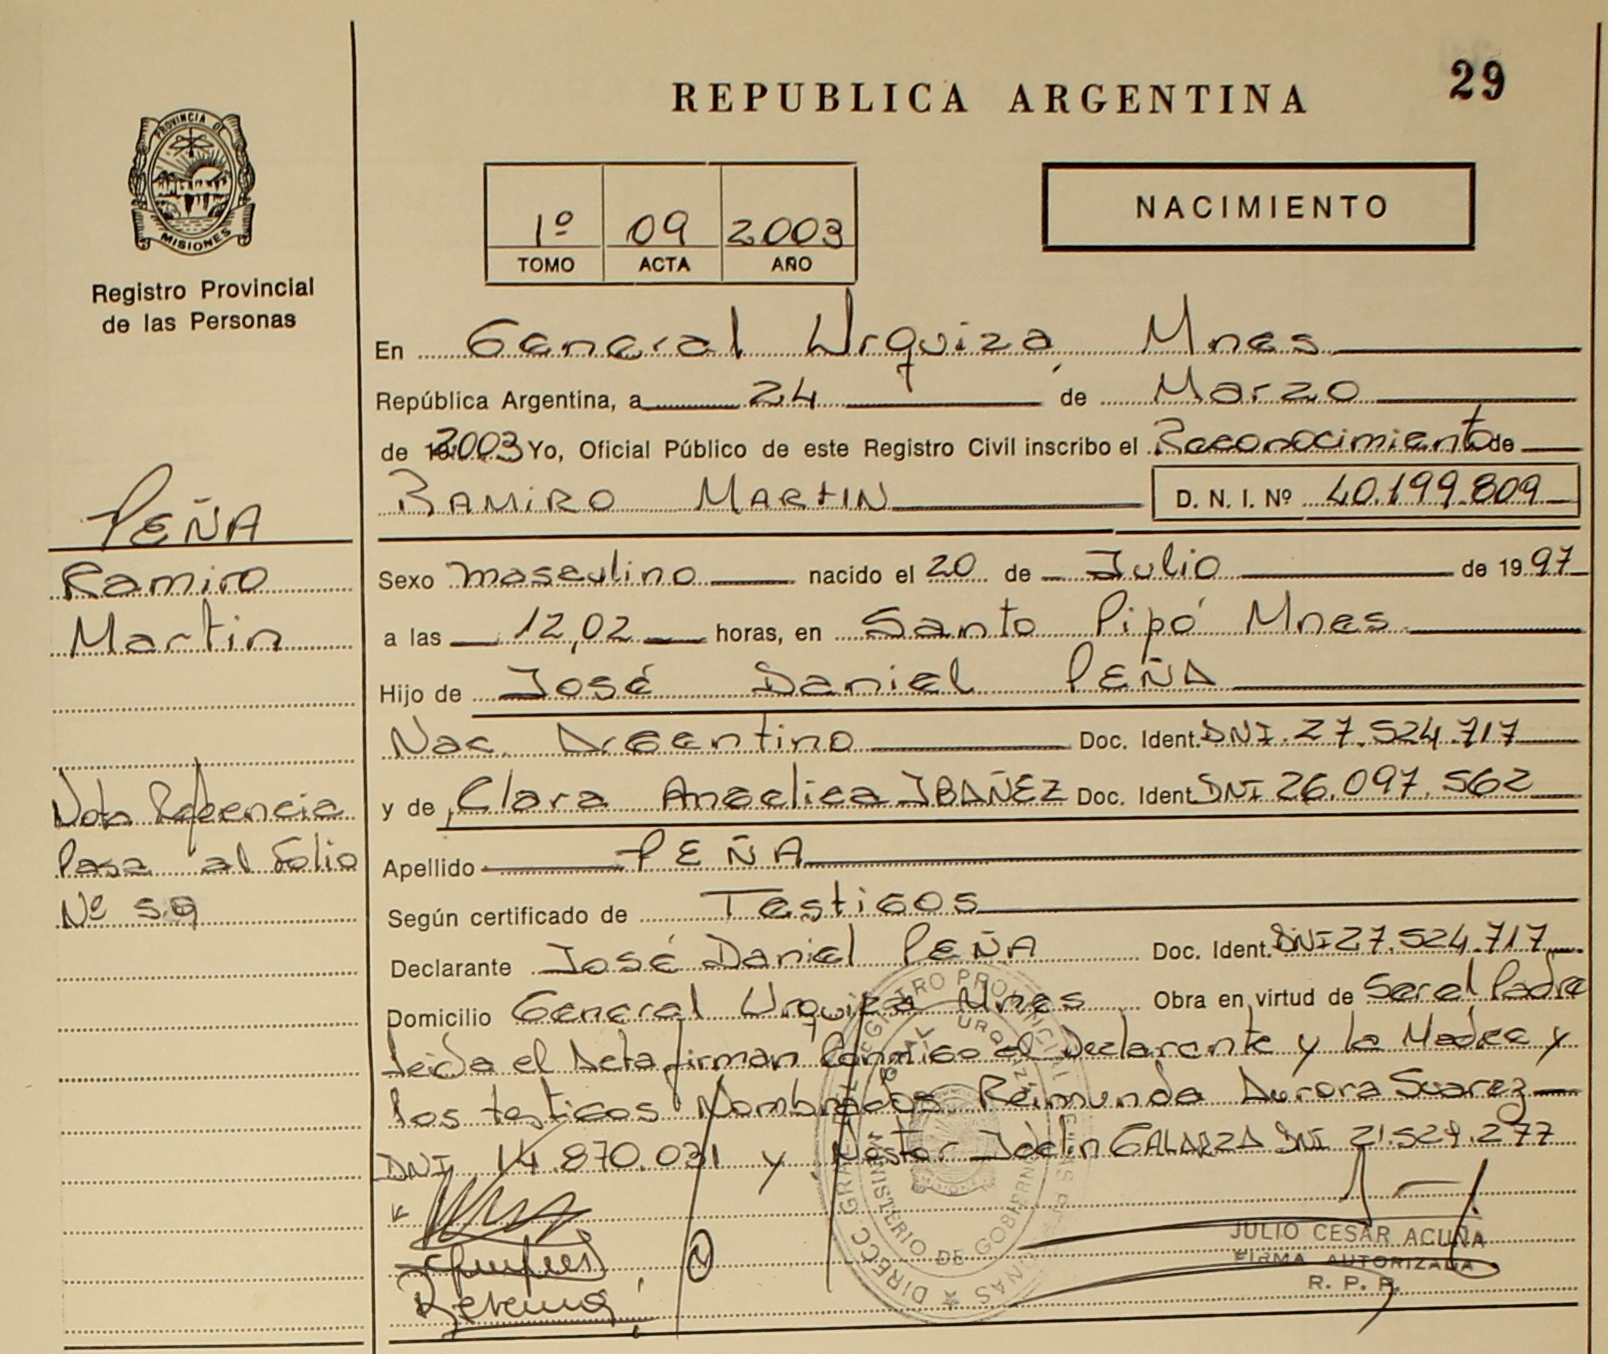 REPUBLICA ARGENTINA
29
PROVINCIA DE
MISIONES
Registro Provincial
de las Personas
1º 09 2003
TOMO ACTA AÑO
NACIMIENTO
En General Urquiza, Mnes
República Argentina, a 24 de Marzo
de 2003 Yo, Oficial Público de este Registro Civil inscribo el Reconocimiento de
RAMIRO MARTIN D. N. I. Nº 40.199.809
PEÑA
Ramiro
Martin
Sexo masculino nacido el 20 de Julio de 1997
a las 12,02 horas, en Santo Pipó Mnes
Hijo de José Daniel PEÑA
Nac. Argentino Doc. Ident. DNI. 27.524.717
y de Clara Angelica IBAÑEZ Doc. Ident. DNI 26.097.562
Nota Referencia
Pasa al folio
Nº 59
Apellido PEÑA
Según certificado de Testigos
Declarante José Daniel PEÑA Doc. Ident. DNI 27.524.717
Domicilio General Urquiza Mnes Obra en virtud de Ser el Padre
Leida el Acta firman Conmigo el Declarante y la Madre y
los testigos Nombrados Reimunda Aurora Suarez
DNI 14.870.031 y Nestor GALARZA DNI 21.529.277
JULIO CESAR ACUÑA
FIRMA AUTORIZADA
R. P. P.
MINISTERIO DE GOBIERNO
GRAL URQUIZA